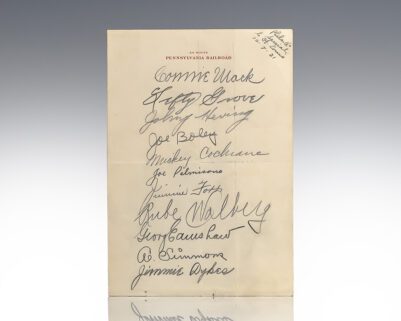 EN ROUTE
PENNSYLVANIA RAILROAD
Connie Mack
Lefty Grove
Johny Heving
Joe Boley
Mickey Cochrane
Joe Palmisano
Jimmie Foxx
Rube Walberg
George Earnshaw
A. Simmons
Jimmie Dykes